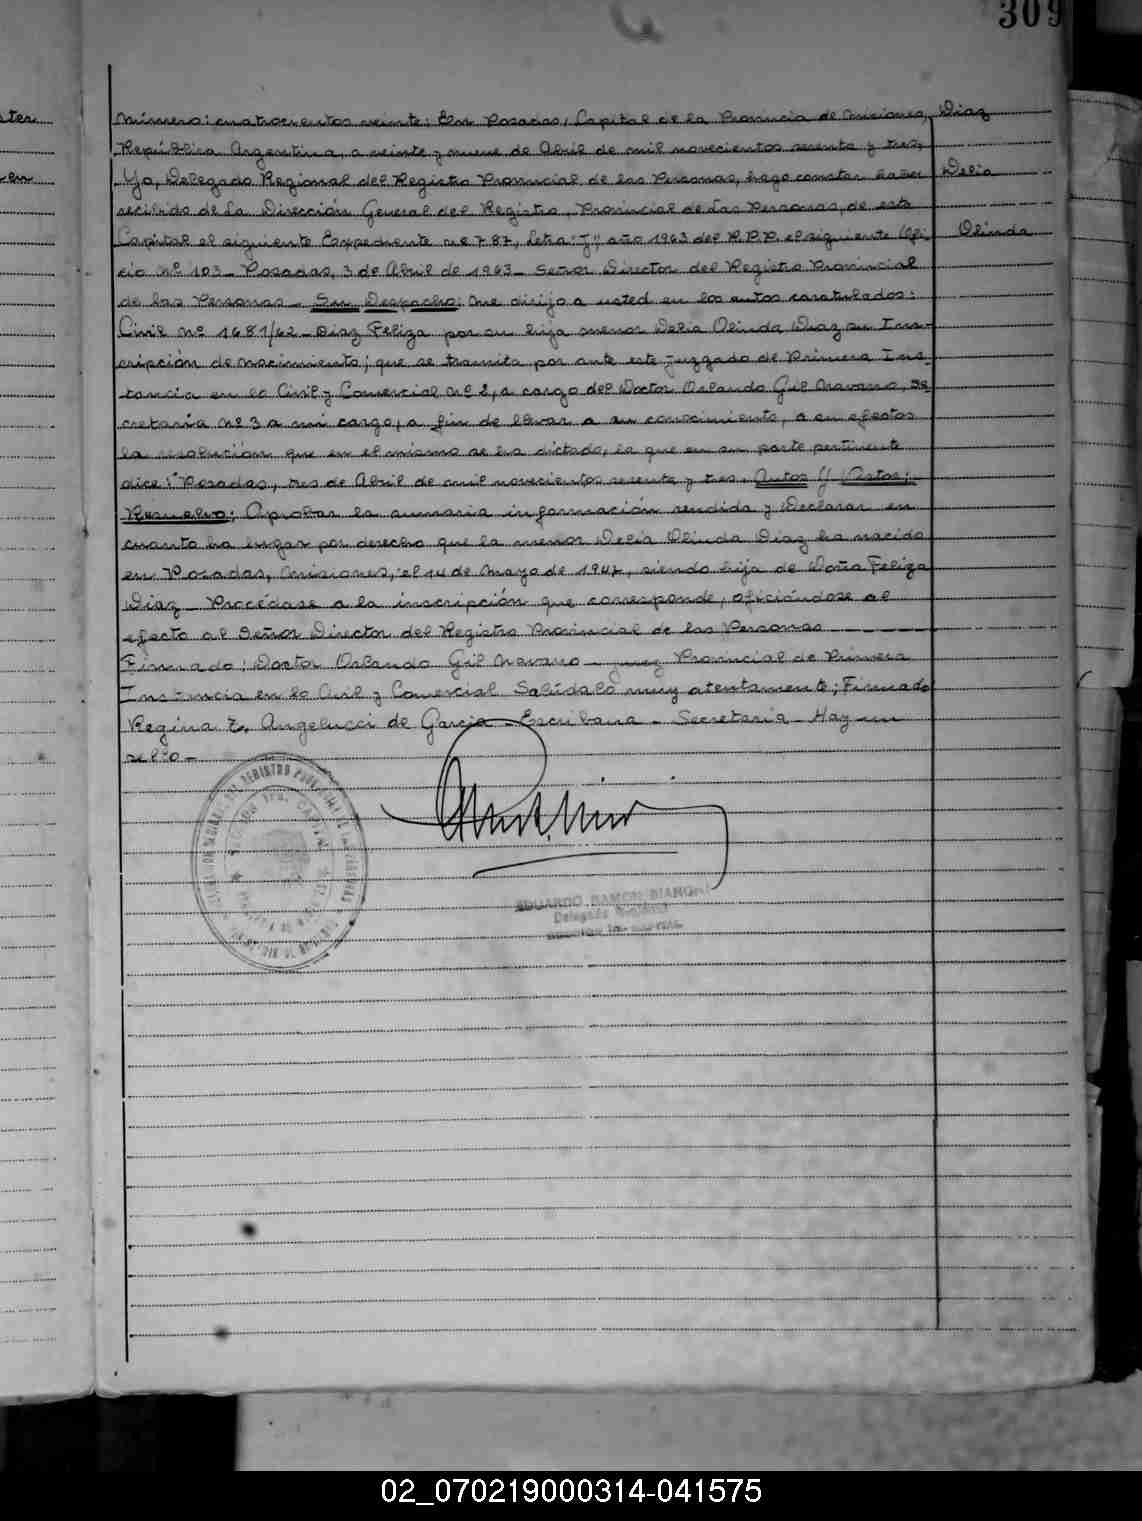 309
ter
en
Número: cuatrocientos veinte: En Posadas, Capital de la Provincia de Misiones, Diaz
República Argentina, a veinte y nueve de Abril de mil novecientos sesenta y tres,
Yo, Delegado Regional del Registro Provincial de las Personas, hago constar haber Delia
recibido de la Dirección General del Registro, Provincial de las Personas, de esta
Capital el siguiente Expediente nº 787, Letra "J" año 1963 del R.P.P. el siguiente Ofi- Olinda
cio Nº 103_ Posadas, 3 de Abril de 1963_ Señor Director del Registro Provincial
de las Personas_ Su Despacho: Me dirijo a usted en los autos caratulados:
Civil Nº 1681/62_ Diaz Feliza por su hija menor Delia Olinda Diaz su Ins-
cripción de nacimiento; que se tramita por ante este juzgado de Primera Ins-
tancia en lo Civil y Comercial Nº 2, a cargo del Doctor Orlando Gil Navarro, Se-
cretaría Nº 3 a mi cargo, a fin de llevar a su conocimiento, a su efectos
la resolución que en el mismo se ha dictado, la que en su parte pertinente
dice: "Posadas, tres de Abril de mil novecientos sesenta y tres. Autos y Vistos;
Resuelvo: Aprobar la sumaria información rendida y Declarar en
cuanto ha lugar por derecho que la menor Delia Olinda Diaz ha nacido
en Posadas, Misiones, el 14 de Mayo de 1947, siendo hija de Doña Feliza
Diaz_ Procédase a la inscripción que corresponde, oficiándose al
efecto al Señor Director del Registro Provincial de las Personas
Firmado: Doctor Orlando Gil Navarro_ Juez Provincial de Primera
Instancia en lo Civil y Comercial Salúdalo muy atentamente; Firmado
Regina T. Angelucci de Garcia_ Escribana_ Secretaria_ Hay un
sello_
EDUARDO RAMON BIANCHI
Delegado Regional
02_070219000314-041575